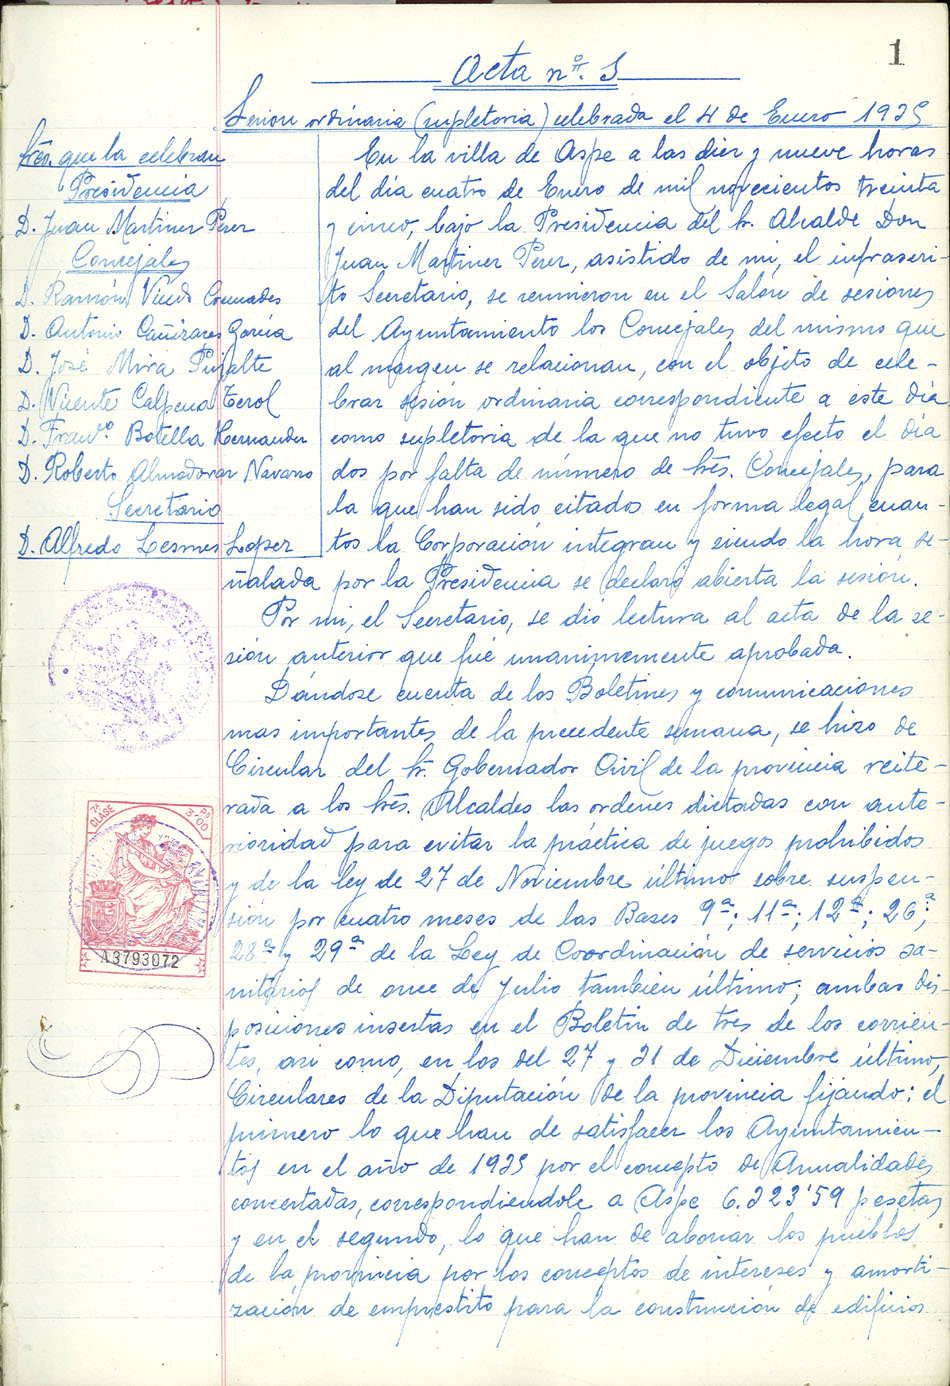 1
Acta nº. 1
Sesion ordinaria (supletoria) celebrada el 4 de Enero 1935
Sres. que la celebran
Presidencia
D. Juan Martinez Perez
Concejales
D. Ramón Vicedo Cremades
D. Antonio Cañizares García
D. José Mira Pujalte
D. Vicente Calpena Terol
D. Franco Botella Hernandez
D. Roberto Almodovar Navarro
Secretario
D. Alfredo Lesmes Lopez
En la villa de Aspe a las diez y nueve horas
del día cuatro de Enero de mil novecientos treinta
y cinco, bajo la Presidencia del Sr. Alcalde Don
Juan Martinez Perez, asistido de mi, el infrascri-
to Secretario, se reunieron en el Salón de sesiones
del Ayuntamiento los Concejales del mismo que
al margen se relacionan, con el objeto de cele-
brar sesión ordinaria correspondiente a este día
como supletoria de la que no tuvo efecto el día
dos por falta de número de Sres. Concejales, para
la que han sido citados en forma legal cuan-
tos la Corporación integran y siendo la hora se-
ñalada por la Presidencia se declaró abierta la sesión.
Por mi, el Secretario, se dió lectura al acta de la se-
sión anterior que fué unanimemente aprobada.
Dándose cuenta de los Boletines y comunicaciones
mas importantes de la precedente semana, se hizo de
Circular del Sr. Gobernador Civil de la provincia reite-
rada a los Sres. Alcaldes las ordenes dictadas con ante-
rioridad para evitar la práctica de juegos prohibidos
y de la ley de 27 de Noviembre último sobre suspen-
sión por cuatro meses de las Bases 9ª; 11ª; 12ª; 26ª;
28ª y 29ª de la Ley de Coordinación de servicios sa-
nitarios de once de Julio tambien último; ambas dis-
posiciones insertas en el Boletin de tres de los corrien-
tes, asi como, en los del 27 y 31 de Diciembre último,
Circulares de la Diputación de la provincia fijando: el
primero lo que han de satisfacer los Ayuntamien-
tos en el año de 1935 por el concepto de Anualidades
concertadas, correspondiendole a Aspe 6.323'59 pesetas
y en el segundo, lo que han de abonar los pueblos
de la provincia por los conceptos de intereses y amorti-
zación de emprestito para la construcción de edificios
7ª CLASE
3'00 PS
A3793072